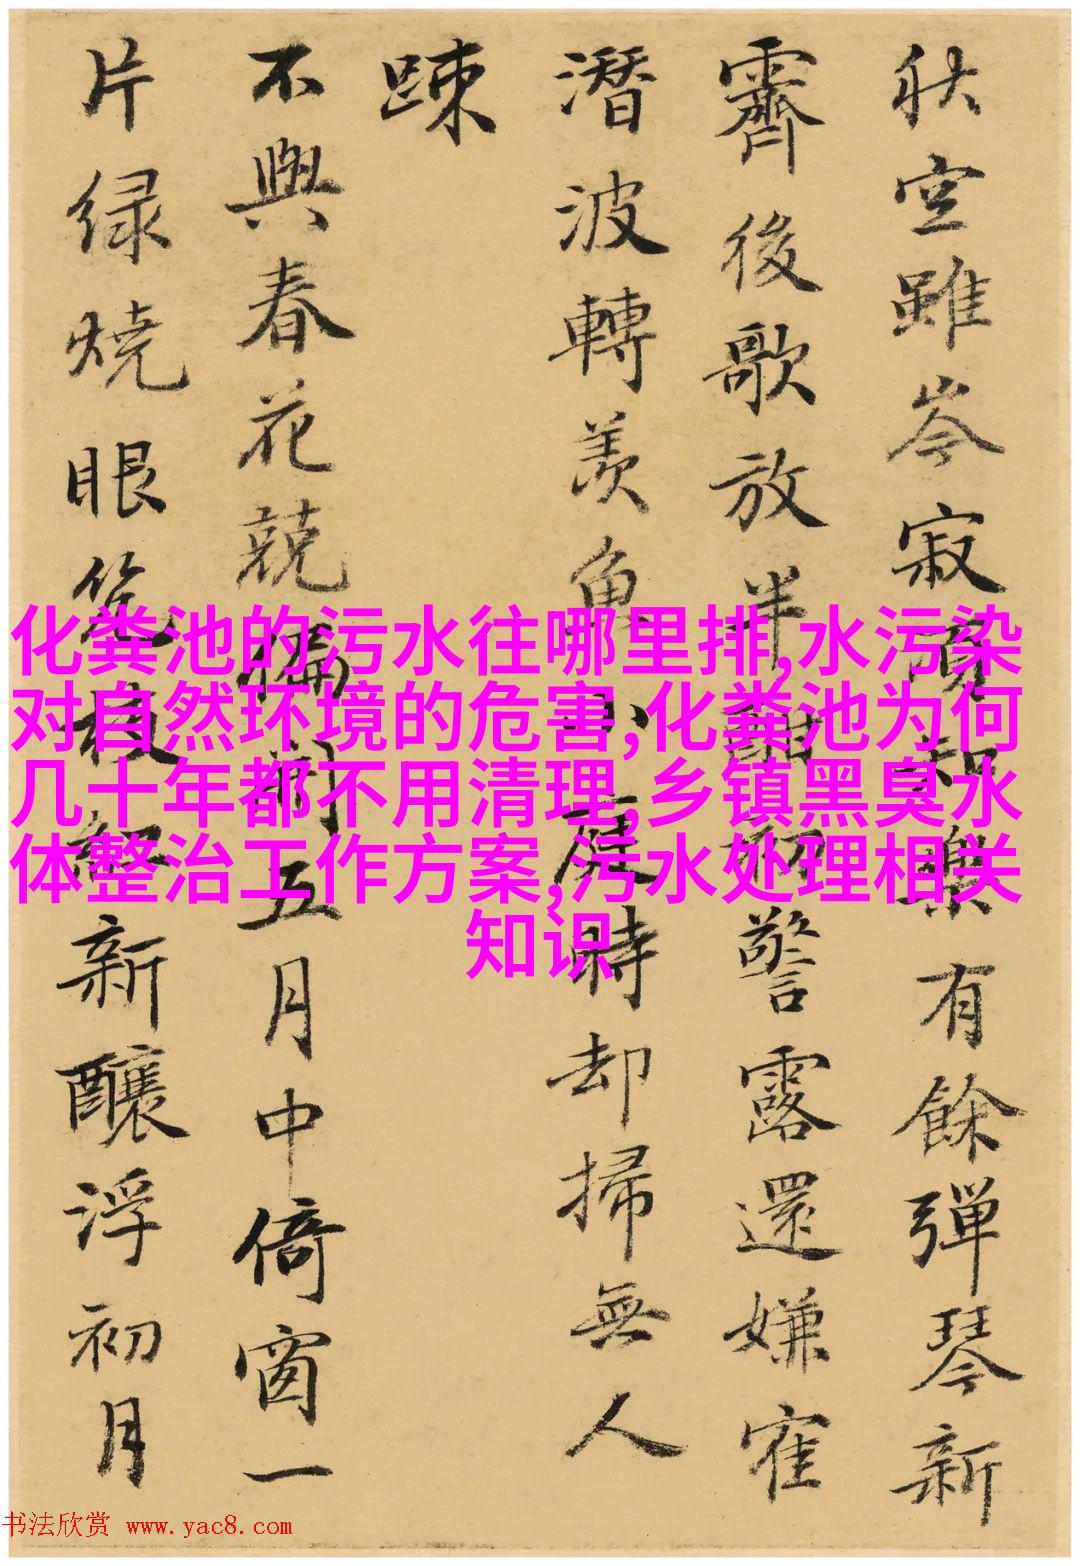 秋空雖岑寂
樂有餘彈琴新
霽後歌放半
警露還嫌寉
潛波轉羨魚
時却掃無人
踈
不與春花競
五月中倚窗一
片緑燒眼
新釀浮初月
化粪池的污水往哪里排,水污染
对自然环境的危害,化粪池为何
几十年都不用清理,乡镇黑臭水
体整治工作方案,污水处理相关
知识
书法欣赏 www.yac8.com